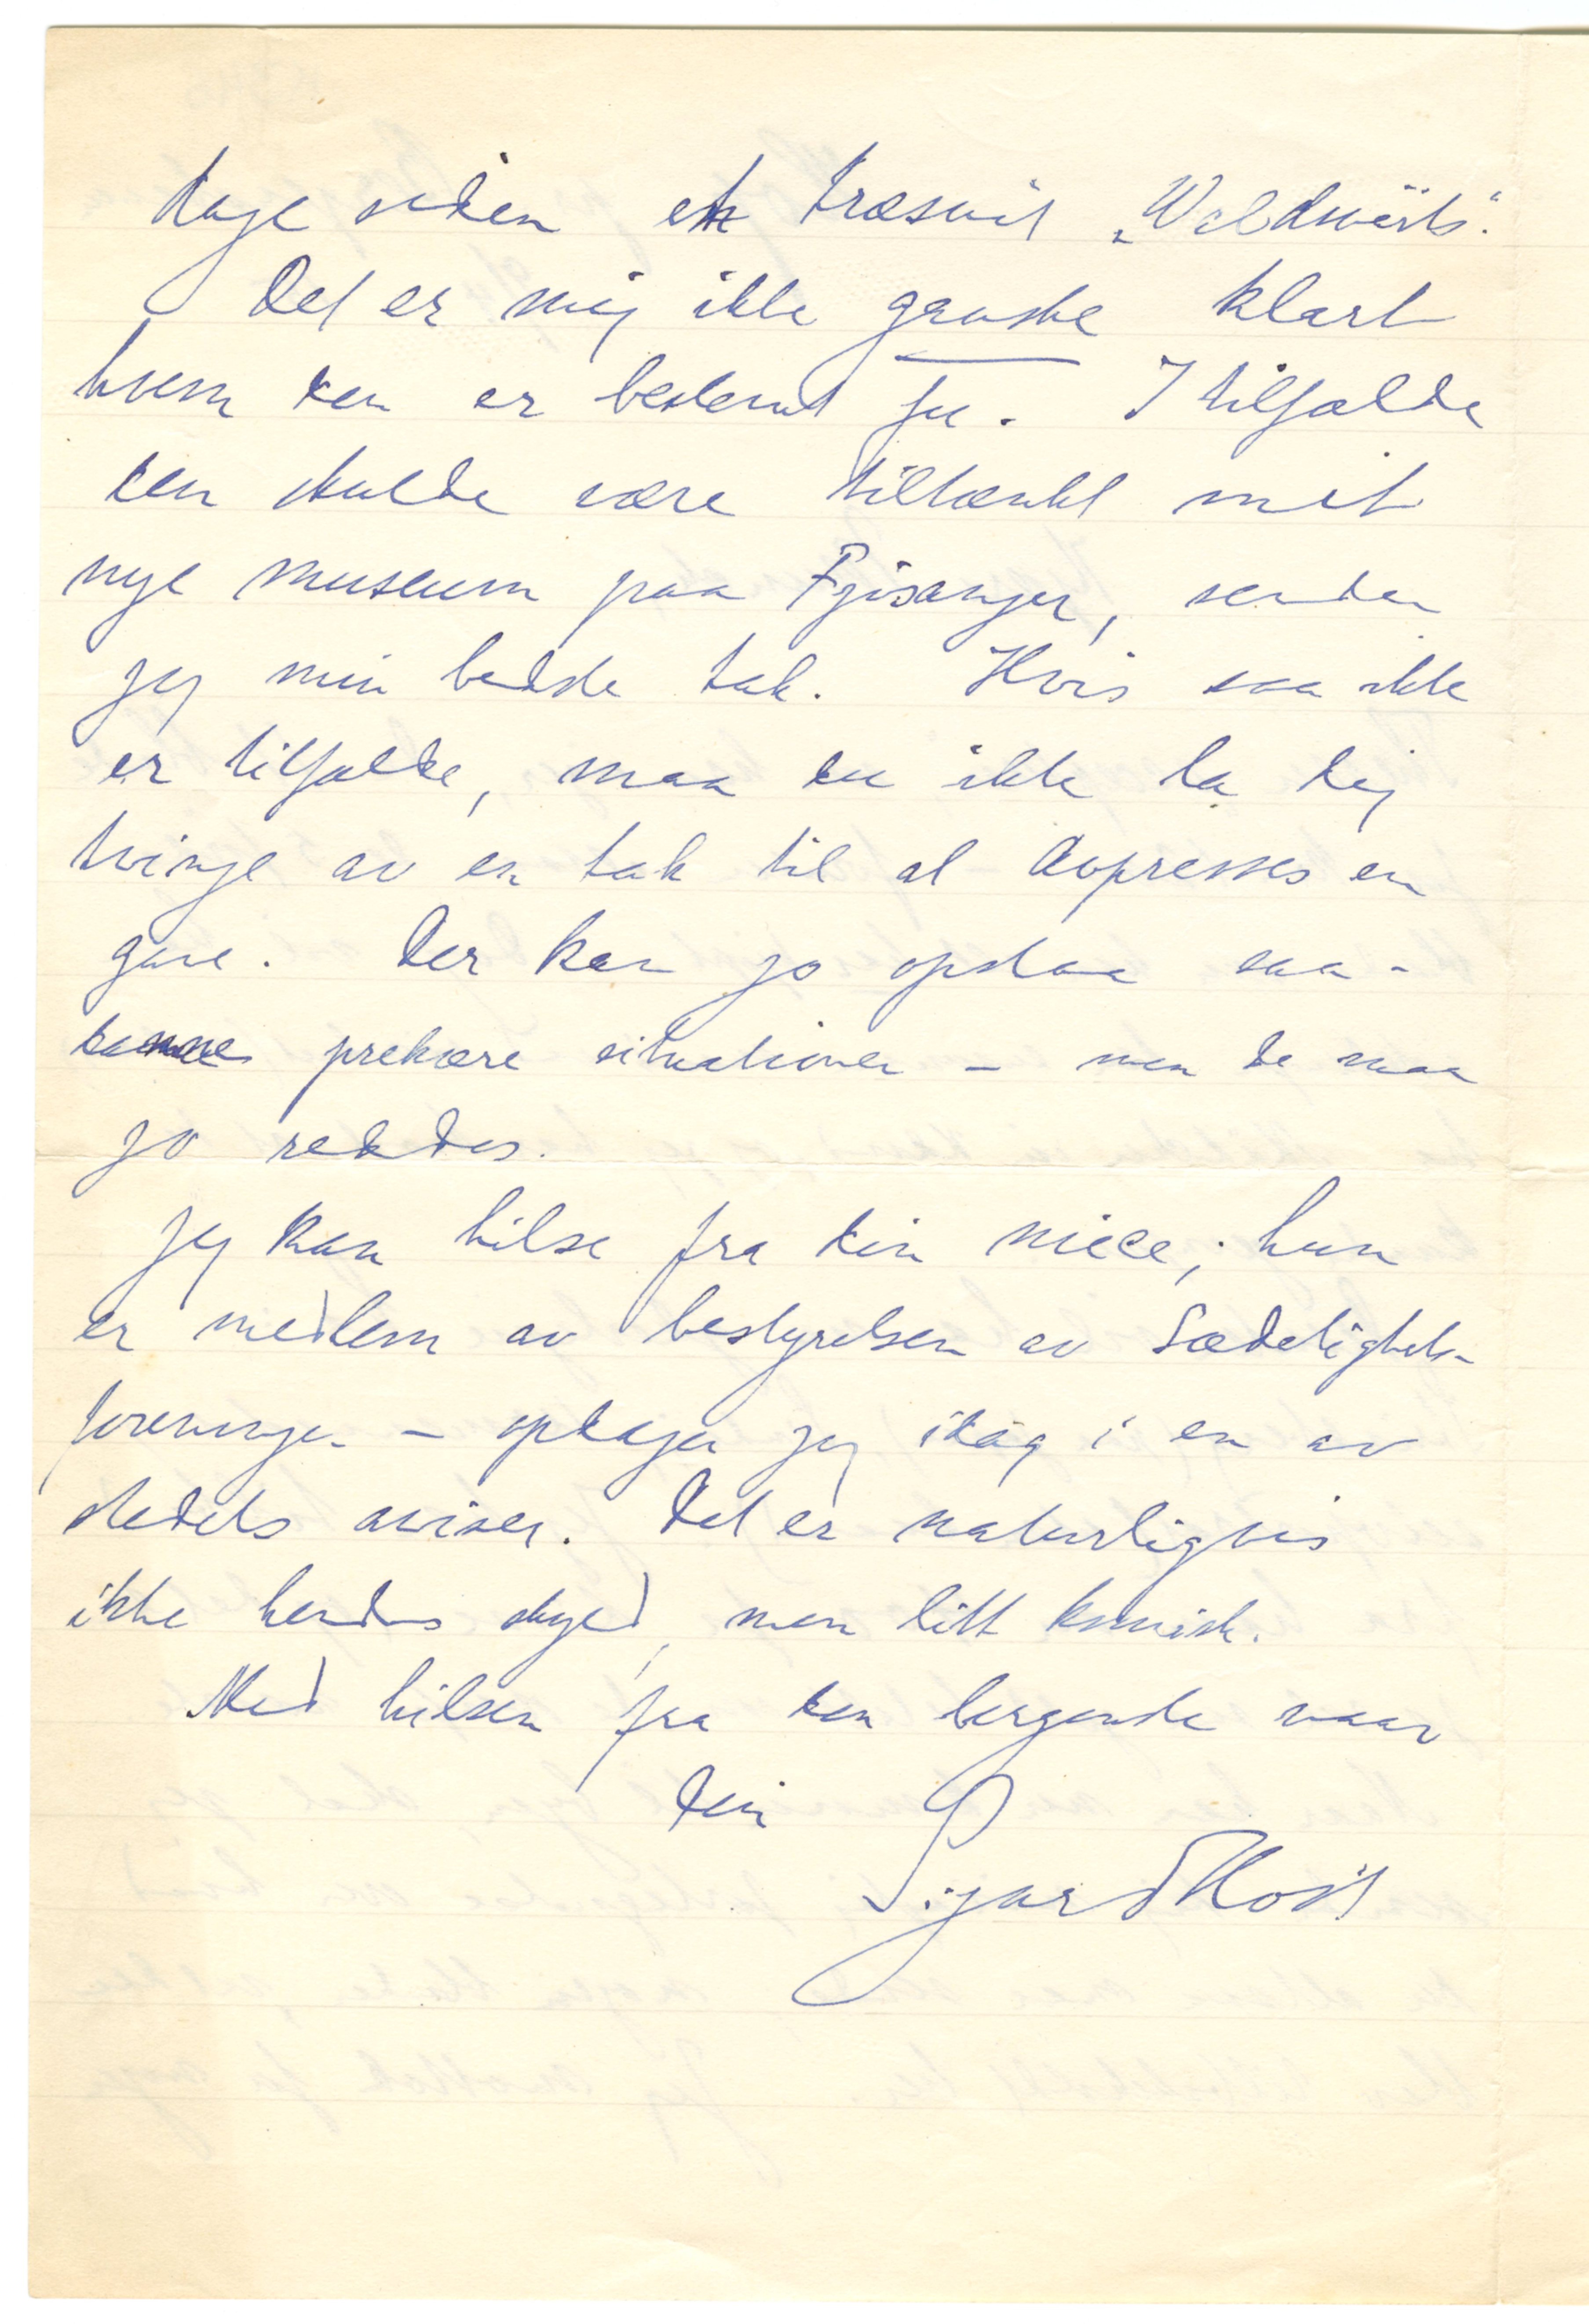 dage siden et træsnit „Waldwärts".
Det er mig ikke ganske klart
hvem den er bestemt for. I tilfælde
den skulde være tiltænkt mit
nye museum paa Fjøsanger, sender
jeg min bedste tak. Hvis saa ikke
er tilfælde, maa du ikke la dig
tvinge av en tak til at avpresses en
gave. Der kan jo opstaa saa-
danne prekære situationer – men de maa
jo reddes.
Jeg kan hilse fra din niece; hun
er medlem av bestyrelsen av Sædeligheds-
foreningen – opdager jeg idag i en av
stedets aviser. Det er naturligvis
ikke hendes skyld, men litt komisk.
Med hilsen fra den bergenske vaar
Din
Sigurd Høst